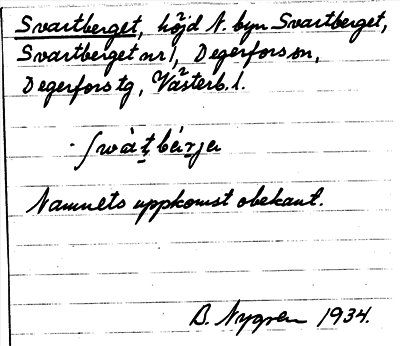 Svartberget, höjd N. byn Svartberget,
Svartberget nr 1, Degerfors sn,
Degerfors tg, Västerb. l.
Namnets uppkomst obekant.
B. Nygren 1934.